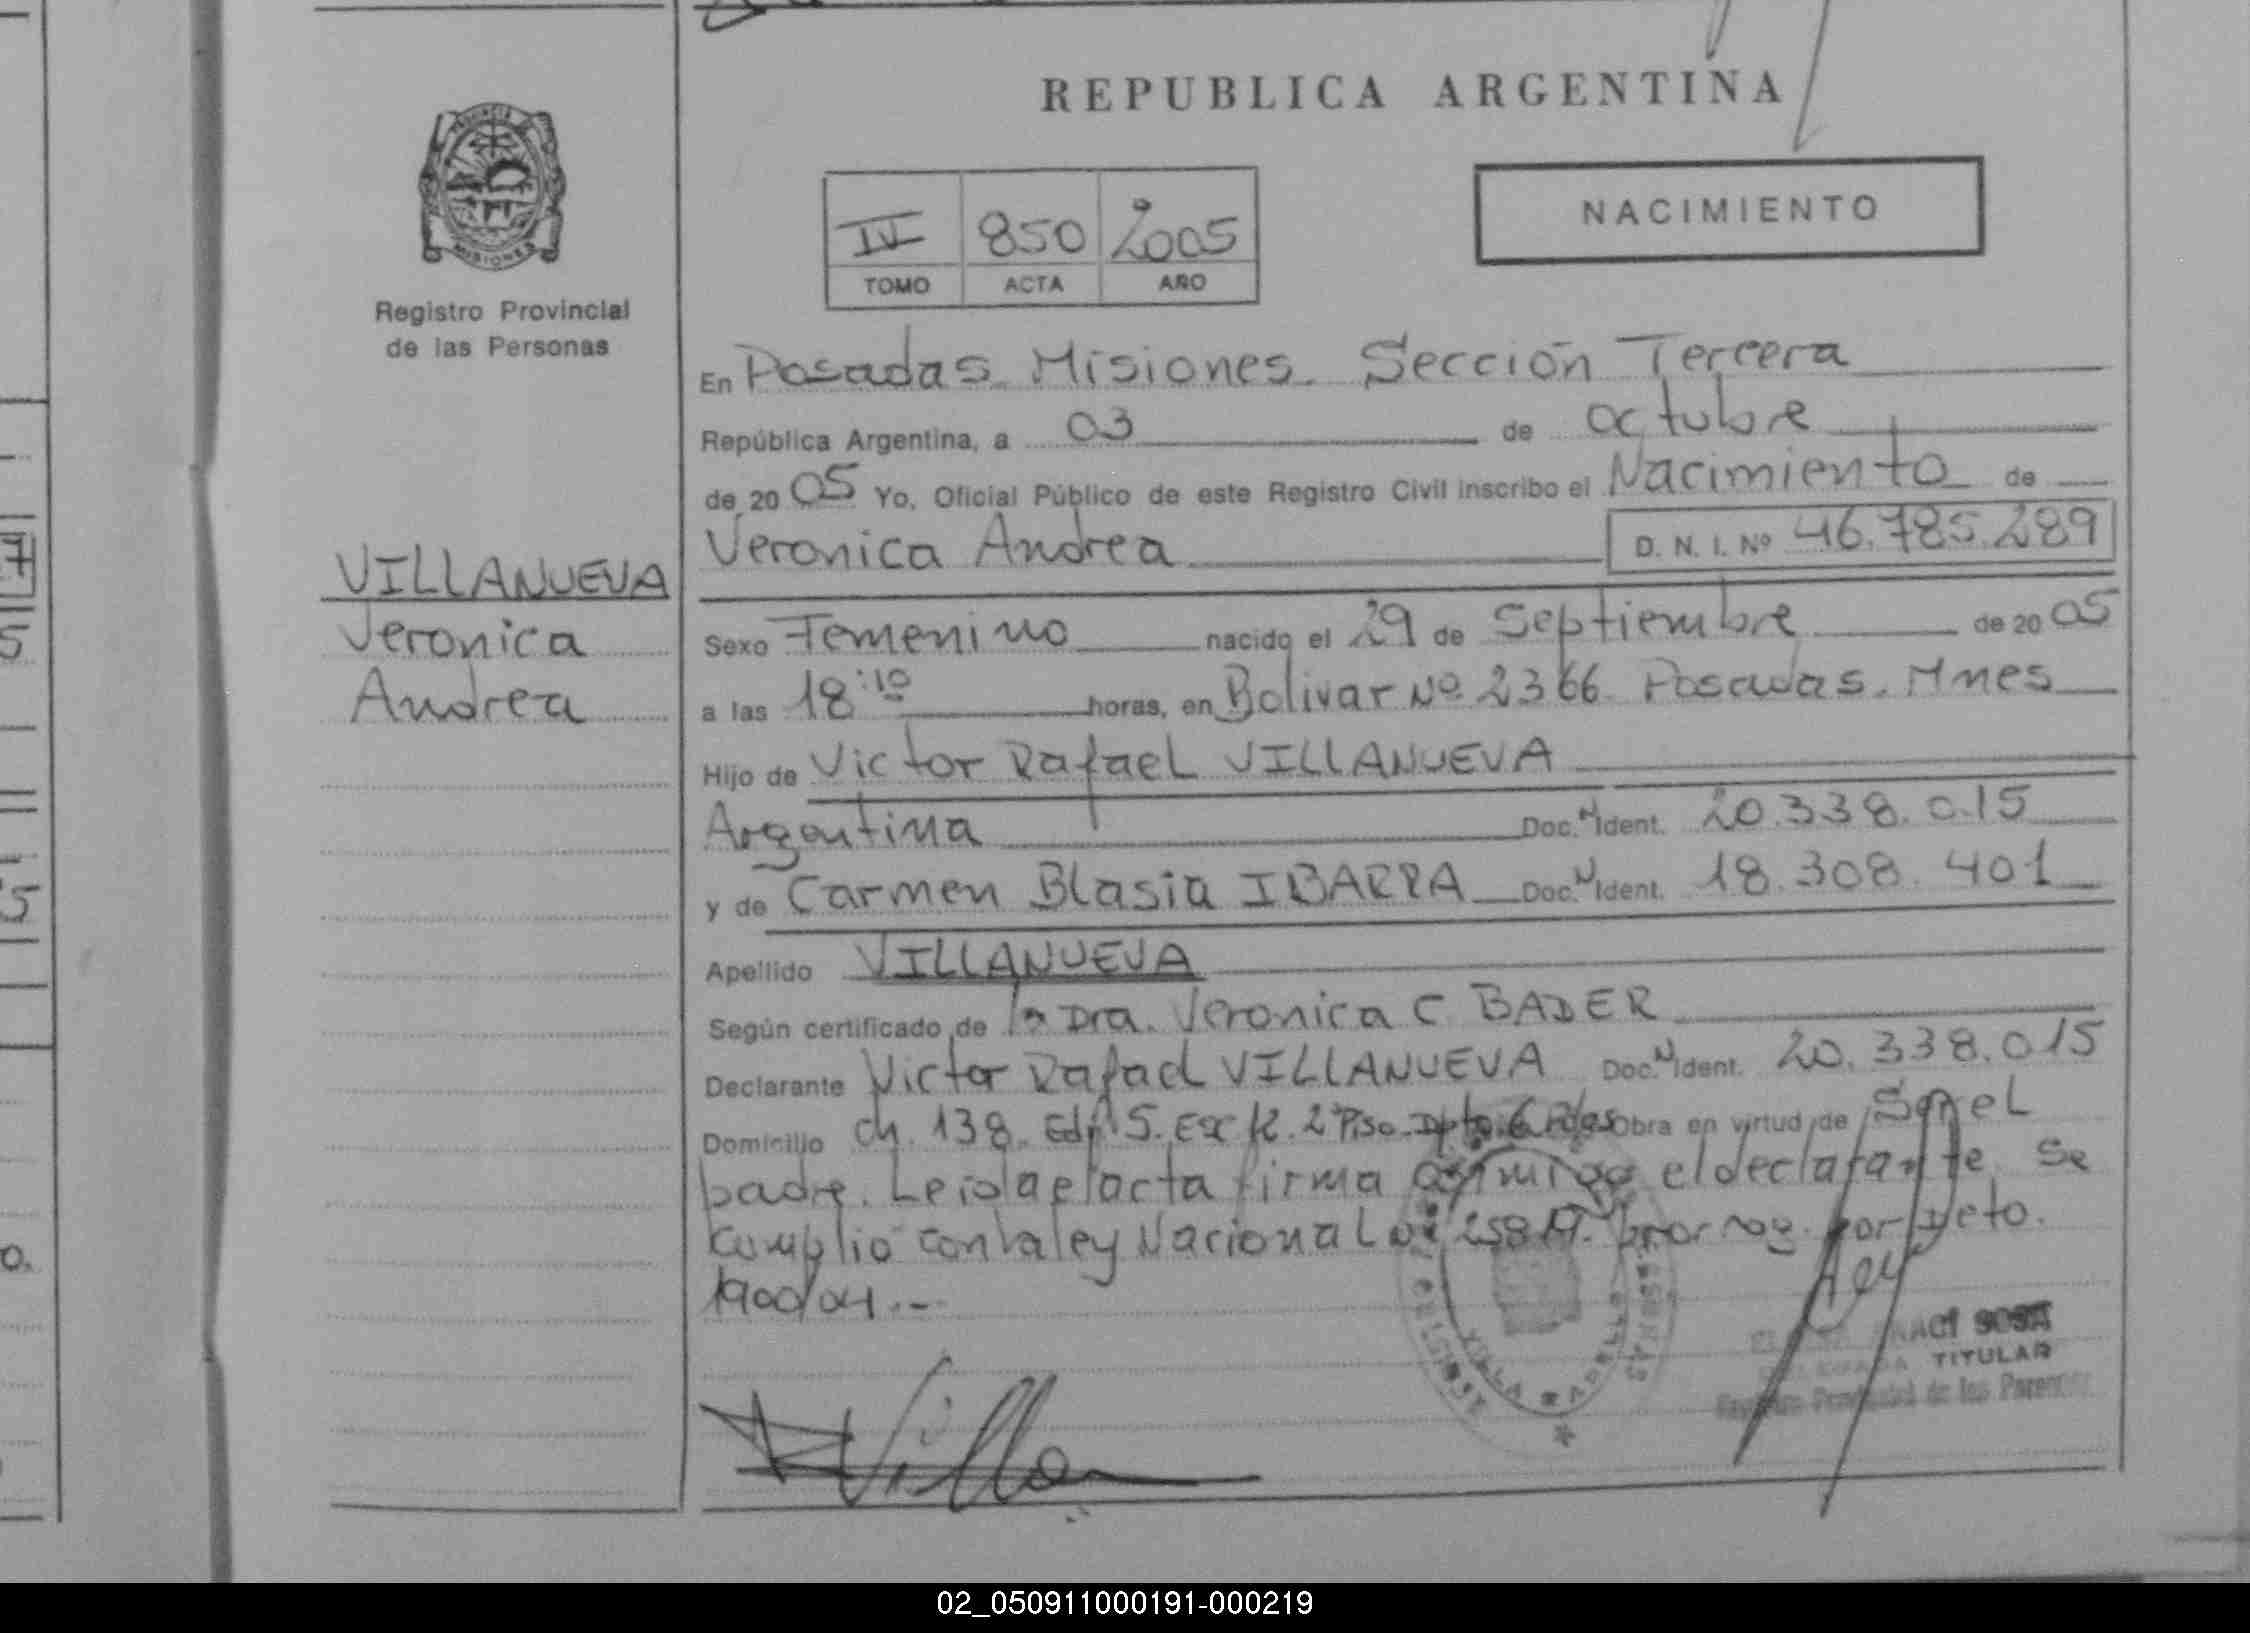 REPUBLICA ARGENTINA
PROVINCIA DE
MISIONES
Registro Provincial
de las Personas
IV 850 2005
TOMO ACTA AÑO
NACIMIENTO
En Posadas. Misiones. Sección Tercera
República Argentina, a 03 de octubre
de 20 05 Yo, Oficial Público de este Registro Civil inscribo el Nacimiento de
Veronica Andrea D. N. I. Nº 46.785.289
VILLANUEVA
Veronica
Andrea
Sexo Femenino nacido el 29 de Septiembre de 20 05
a las 18:10 horas, en Bolivar Nº 2366. Posadas. Mnes
Hijo de Victor Rafael VILLANUEVA
Argentina Doc. N Ident. 20.338.015
y de Carmen Blasia IBARRA Doc. N Ident. 18.308.401
Apellido VILLANUEVA
Según certificado de la Dra. Veronica C. BADER
Declarante Victor Rafael VILLANUEVA Doc. N Ident. 20.338.015
Domicilio Ch. 138. Edf 5. Esc K. 2º Piso. Dpto 6 Pdas Obra en virtud de Ser el
padre. Leida el acta firma conmigo el declarante. Se
cumplio con la ley Nacional Nº 25819. prorrog. por Dcto.
1900/04.-
Villa
VILLA
TITULAR
Registro Provincial de las Personas
02_050911000191-000219